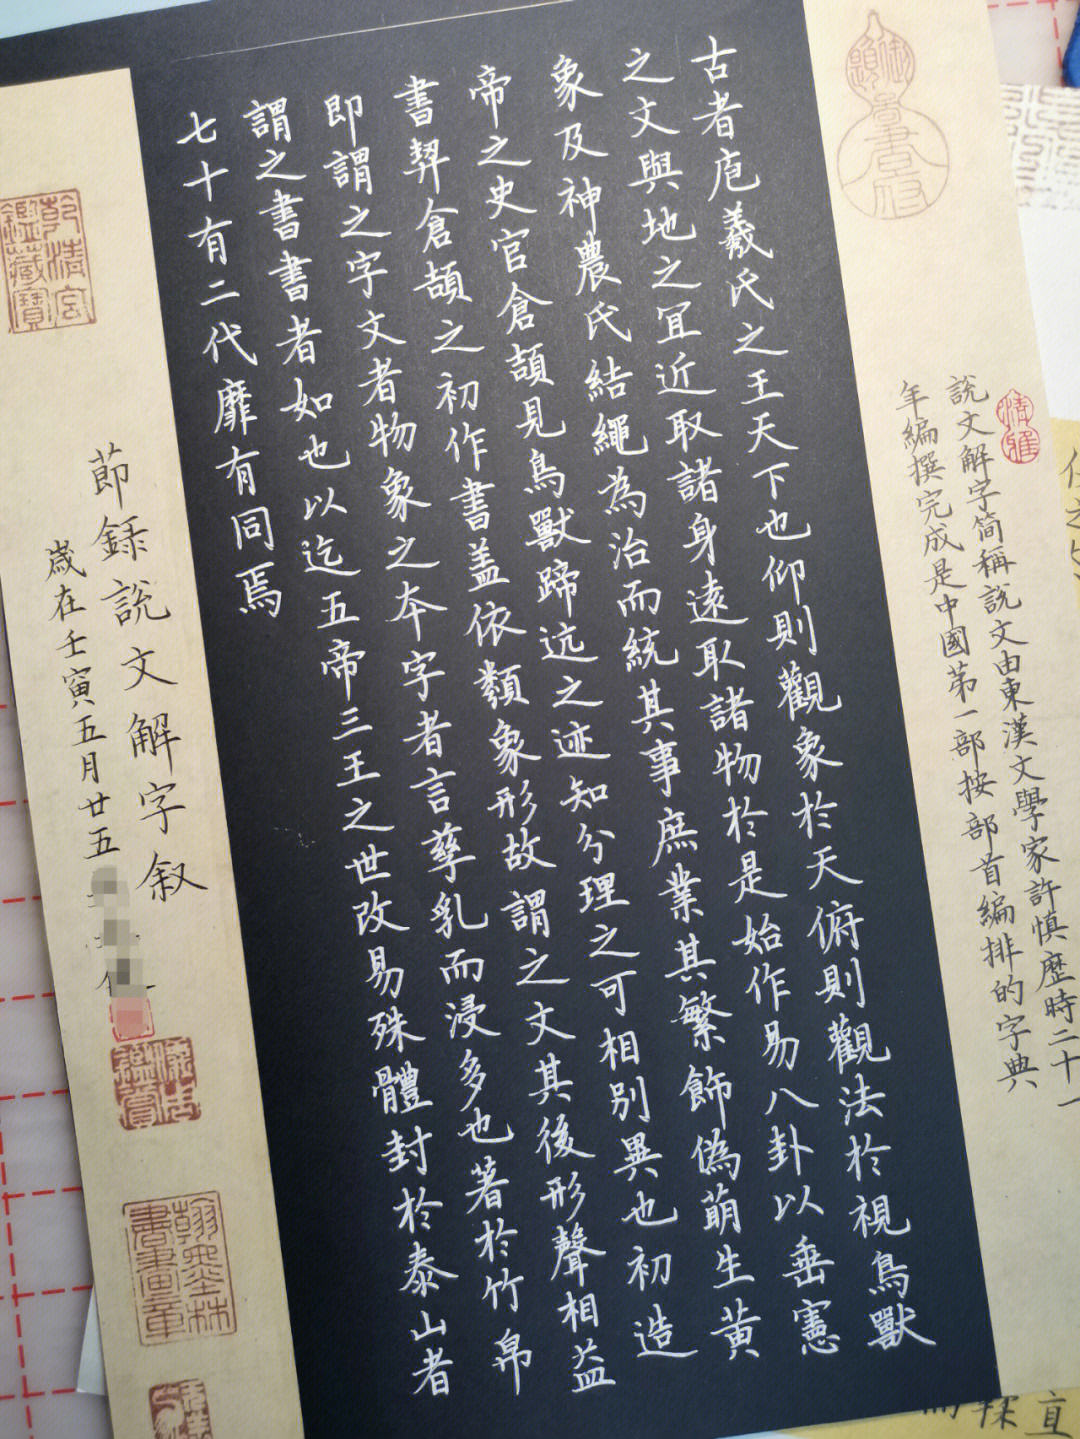 清雅
說文解字简稱說文由東漢文學家許慎歷時二十一
年編撰完成是中國第一部按部首編排的字典
古者庖羲氏之王天下也仰則觀象於天俯則觀法於視鳥獸
之文與地之宜近取諸身遠取諸物於是始作易八卦以垂憲
象及神農氏結繩為治而統其事庶業其繁飾偽萌生黄
帝之史官倉頡見鳥獸蹄迒之迹知分理之可相別異也初造
書契倉頡之初作書盖依類象形故謂之文其後形聲相益
即謂之字文者物象之本字者言孳乳而浸多也著於竹帛
謂之書書者如也以迄五帝三王之世改易殊體封於泰山者
七十有二代靡有同焉
莭錄說文解字叙
歲在壬寅五月廿五
乾清宮
鑑藏寶
翰墨林
書畫章